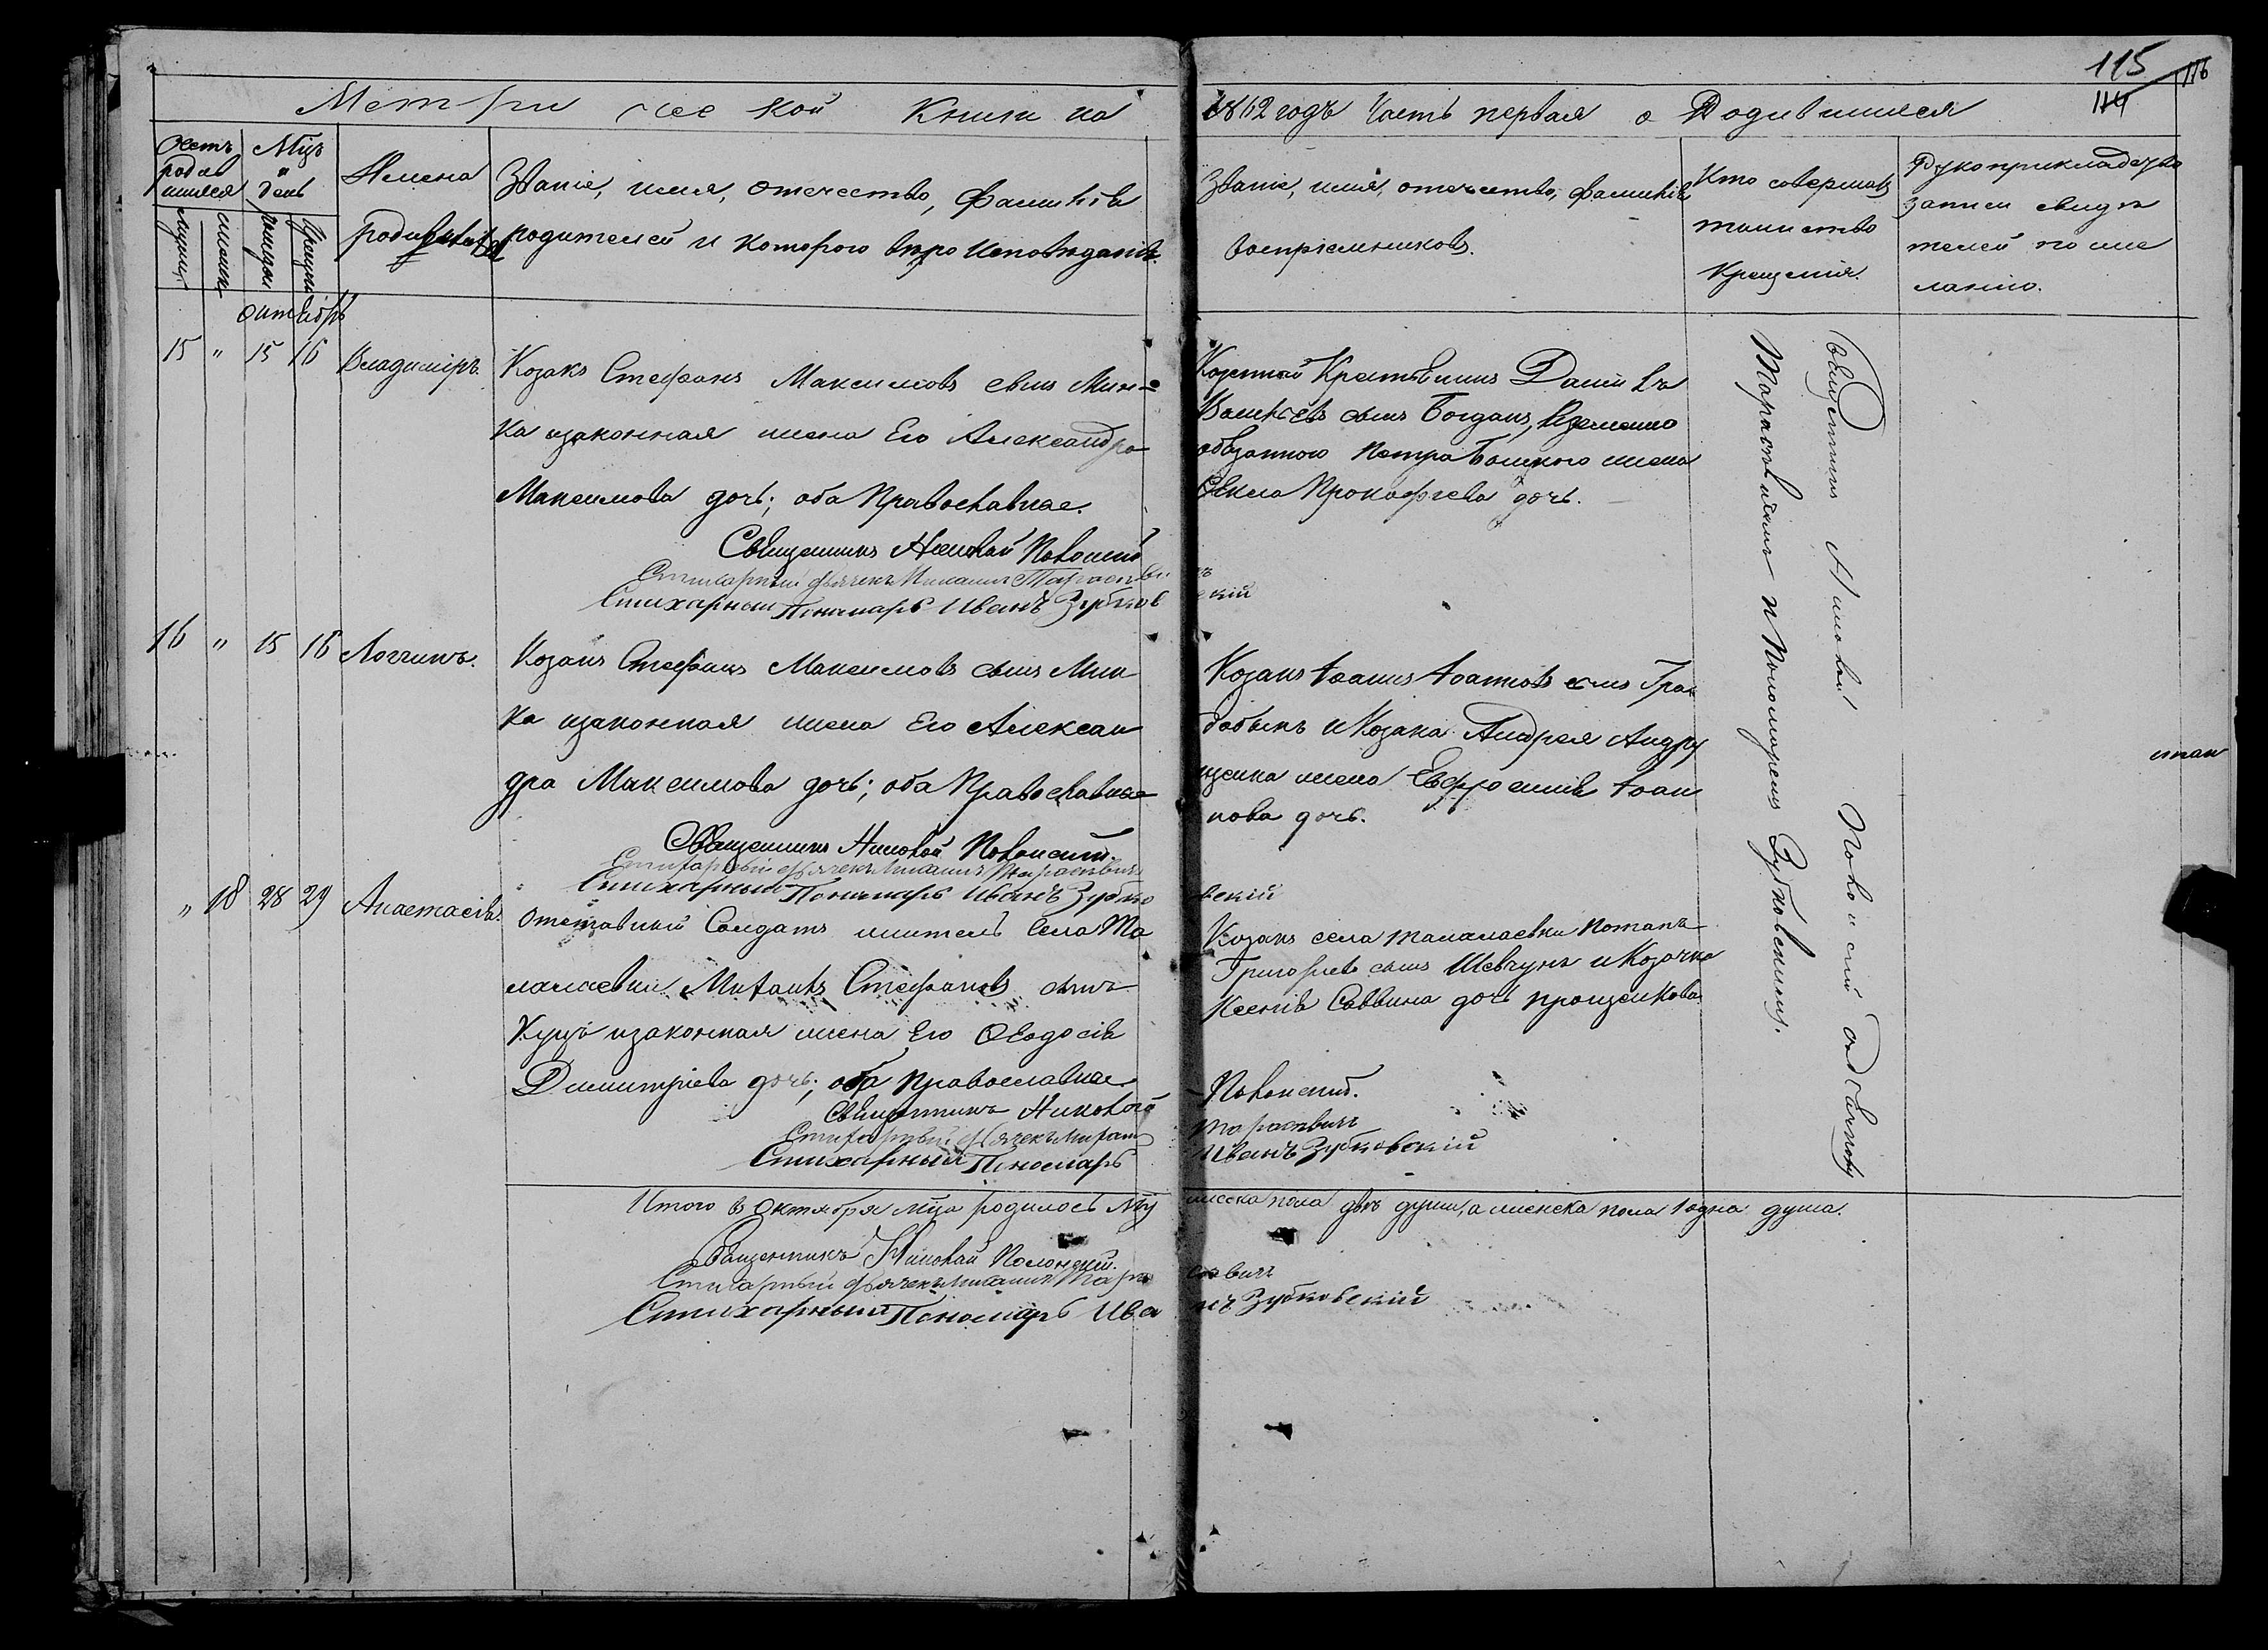 115
114
116
Метрической Книги на 1862 годъ Часть первая о Родившихся
Счетъ родившихся
Мцъ и день
Имена родившихся
Званіе, имя, отечество, фамилія
родителей и которого вѣроисповѣданія.
Званіе, имя, отечество, фамилія
воспріемниковъ.
Кто совершалъ
таинство
крещенія.
Рукоприкладство
записи свидѣ
телей по же
ланію.
мужеск.
женск.
рожденія
крещенія
Октябрь
15 " 15 16 Владиміръ.
Козакъ Стефанъ Максимовъ сынъ Мин=
ка изаконная жена Его Александра
Максимова дочь; оба Православные.
Священникъ Николай Полонскій
Стихарный дьячекъ Михаилъ Тарасевичъ
Стихарный Пономарь Иванъ Зубковскій
Крестьянинъ Даніилъ
Васильевъ сынъ Богданъ, Временно
обязанного Петра жена
Прокофіева дочь.
16 " 15 16 Логгинъ.
Козакъ Стефанъ Максимовъ сынъ Мин
ка изаконная жена Его Алексан
дра Максимова дочь; оба Православные
Священникъ Николай Полонскій.
Стихарный дьячекъ Михаилъ Тарасевичъ
Стихарный Пономарь Иванъ Зубковскій
Козакъ Іоаннъ Іоанновъ сынъ
и Козака Андрея Андру
щенка жена Евфросинія Іоан
нова дочь.
" 18 28 29 Анастасія.
Отставный Солдатъ житель Села Та
лалаевки Михаилъ Стефановъ сынъ
Куцъ изаконная жена Его Ѳеодосія
Димитріева дочь; оба православные
Священникъ Николай Полонскій.
Стихарный дьячекъ Михаилъ Тарасевичъ
Стихарный Пономарь Иванъ Зубковскій
Козакъ села Талалаевки Потапъ
Григорьевъ сынъ Шевчукъ и Козачка
Ксенія Саввина дочь Прощенкова.
Священникъ Николай Полонскій
Тарасевичемъ и Пономаремъ Зубковскимъ.
Итого въ Октябрѣ мцѣ родилось мужеска пола двѣ души, а женска пола 1 одна душа.
Священникъ Николай Полонскій.
Стихарный дьячекъ Михаилъ Тарасевичъ
Стихарный Пономарь Иванъ Зубковскій